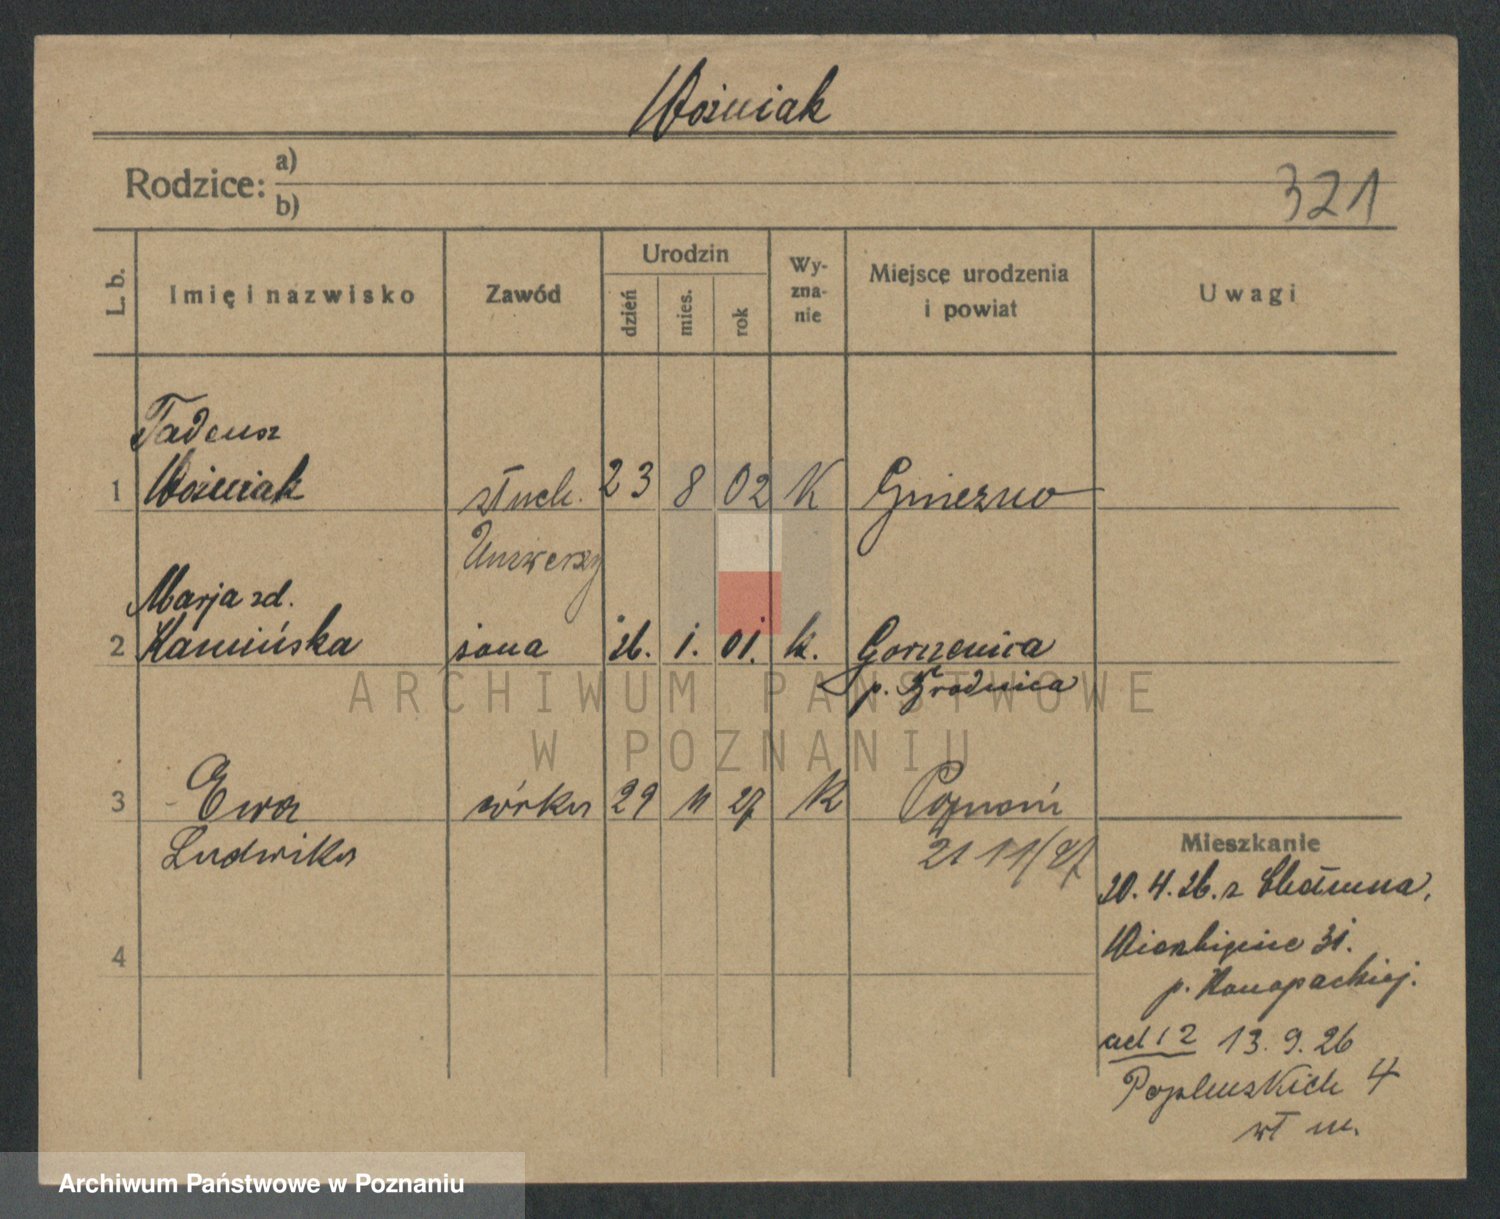 Woźniak
Rodzice: a)
b)
321
L. b.
Imię i nazwisko
Zawód
Urodzin
dzień
mies.
rok
Wy-
zna-
nie
Miejsce urodzenia
i powiat
Uwagi
Tadeusz
1 Woźniak słuch. 23 8 02 K Gniezno
Uniwersy
Marja zd.
2 Kamińska żona 26. 1. 01. k. Gorzenica
p. Brodnica
ARCHIWUM PAŃSTWOWE
W POZNANIU
3 Ewa córka 29 11 27 K Poznań
Ludwika 21 11/27
Mieszkanie
20. 4. 26. z Chełmna,
Wierzbięcice 31.
p. Konopackiej.
4
ad 1 2 13. 9. 26
4
wł m.
Archiwum Państwowe w Poznaniu